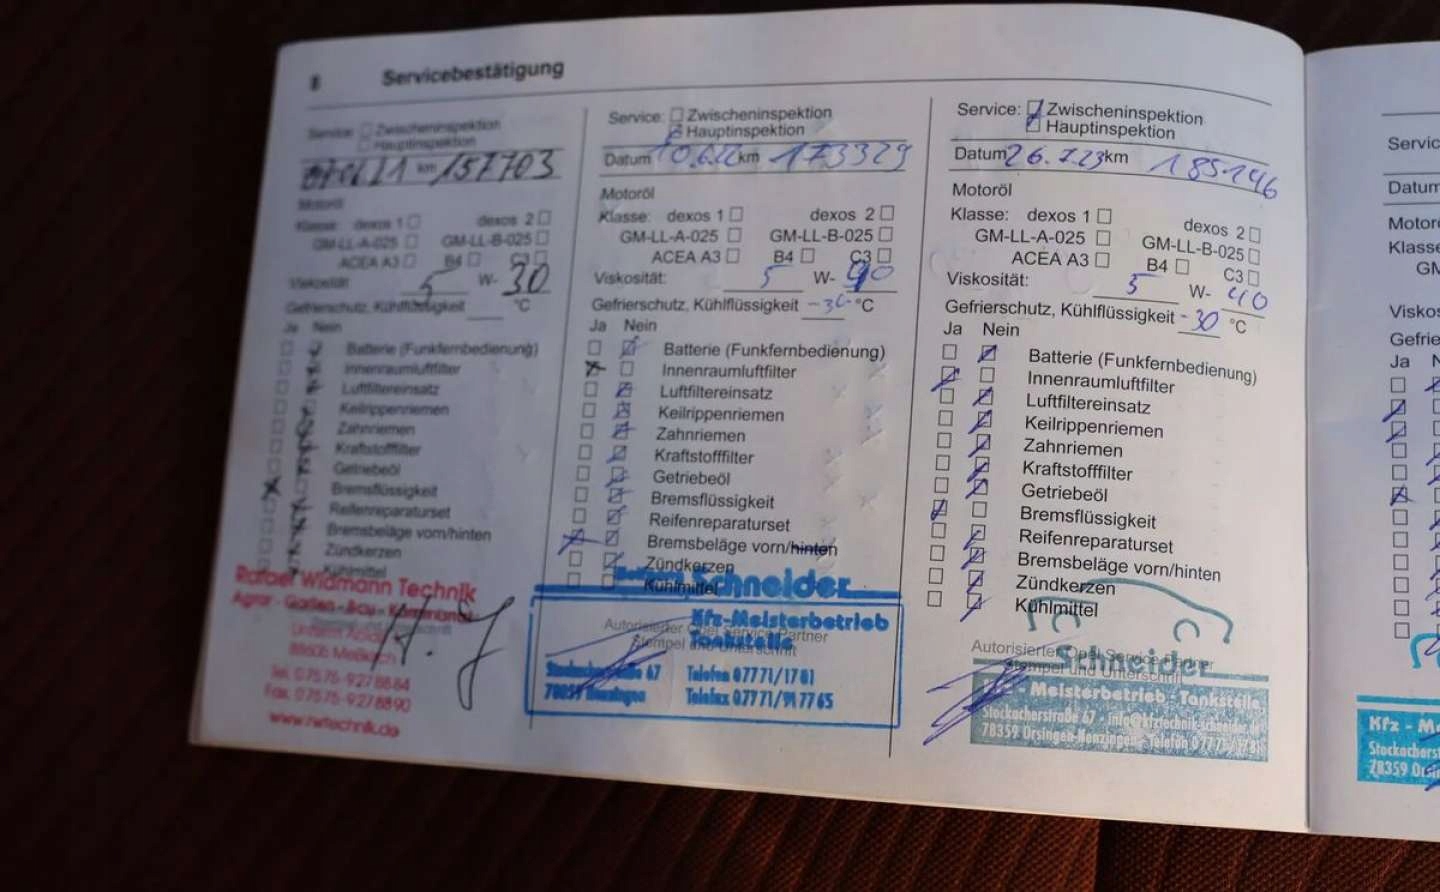 8 Servicebestätigung
Service: Zwischeninspektion
Hauptinspektion
km 157703
Motoröl
Klasse: dexos 1 dexos 2
GM-LL-A-025 GM-LL-B-025
ACEA A3 B4 C3
Viskosität 5 W- 30
Gefrierschutz, Kühlflüssigkeit °C
Ja Nein
Batterie (Funkfernbedienung)
Innenraumluftfilter
Luftfiltereinsatz
Keilrippenriemen
Zahnriemen
Kraftstofffilter
Getriebeöl
Bremsflüssigkeit
Reifenreparaturset
Bremsbeläge vorn/hinten
Zündkerzen
Kühlmittel
Rafael Widmann Technik
Agrar - Garten - Bau - Kommunal
88605 Meßkirch
Tel. 07575-9278884
Fax. 07575-9278890
www.rwtechnik.de
Service: Zwischeninspektion
Hauptinspektion
Datum 10.6.22 km 173329
Motoröl
Klasse: dexos 1 dexos 2
GM-LL-A-025 GM-LL-B-025
ACEA A3 B4 C3
Viskosität: 5 W- 40
Gefrierschutz, Kühlflüssigkeit -30 °C
Ja Nein
Batterie (Funkfernbedienung)
Innenraumluftfilter
Luftfiltereinsatz
Keilrippenriemen
Zahnriemen
Kraftstofffilter
Getriebeöl
Bremsflüssigkeit
Reifenreparaturset
Bremsbeläge vorn/hinten
Zündkerzen
Kühlmittel
Schneider
Kfz-Meisterbetrieb
Autorisierter Opel Service Partner
Tankstelle
Stempel und Unterschrift
67 Telefon 07771/1781
Telefax 07771/917765
Service: Zwischeninspektion
Hauptinspektion
Datum 26.7.23 km 185146
Motoröl
Klasse: dexos 1 dexos 2
GM-LL-A-025 GM-LL-B-025
ACEA A3 B4 C3
Viskosität: 5 W- 40
Gefrierschutz, Kühlflüssigkeit -30 °C
Ja Nein
Batterie (Funkfernbedienung)
Innenraumluftfilter
Luftfiltereinsatz
Keilrippenriemen
Zahnriemen
Kraftstofffilter
Getriebeöl
Bremsflüssigkeit
Reifenreparaturset
Bremsbeläge vorn/hinten
Zündkerzen
Kühlmittel
Autorisierter Opel Service Partner
Schneider
Stempel und Unterschrift
Meisterbetrieb - Tankstelle
Stockacherstraße 67 - info@kfztechnik-schneider.de
78359 Orsingen-Nenzingen - Telefon 07771/1781
Servic
Datum
Motorö
Klasse
GM
Viskos
Gefrie
Ja N
Kfz - Me
Stockacherst
78359 Orsin